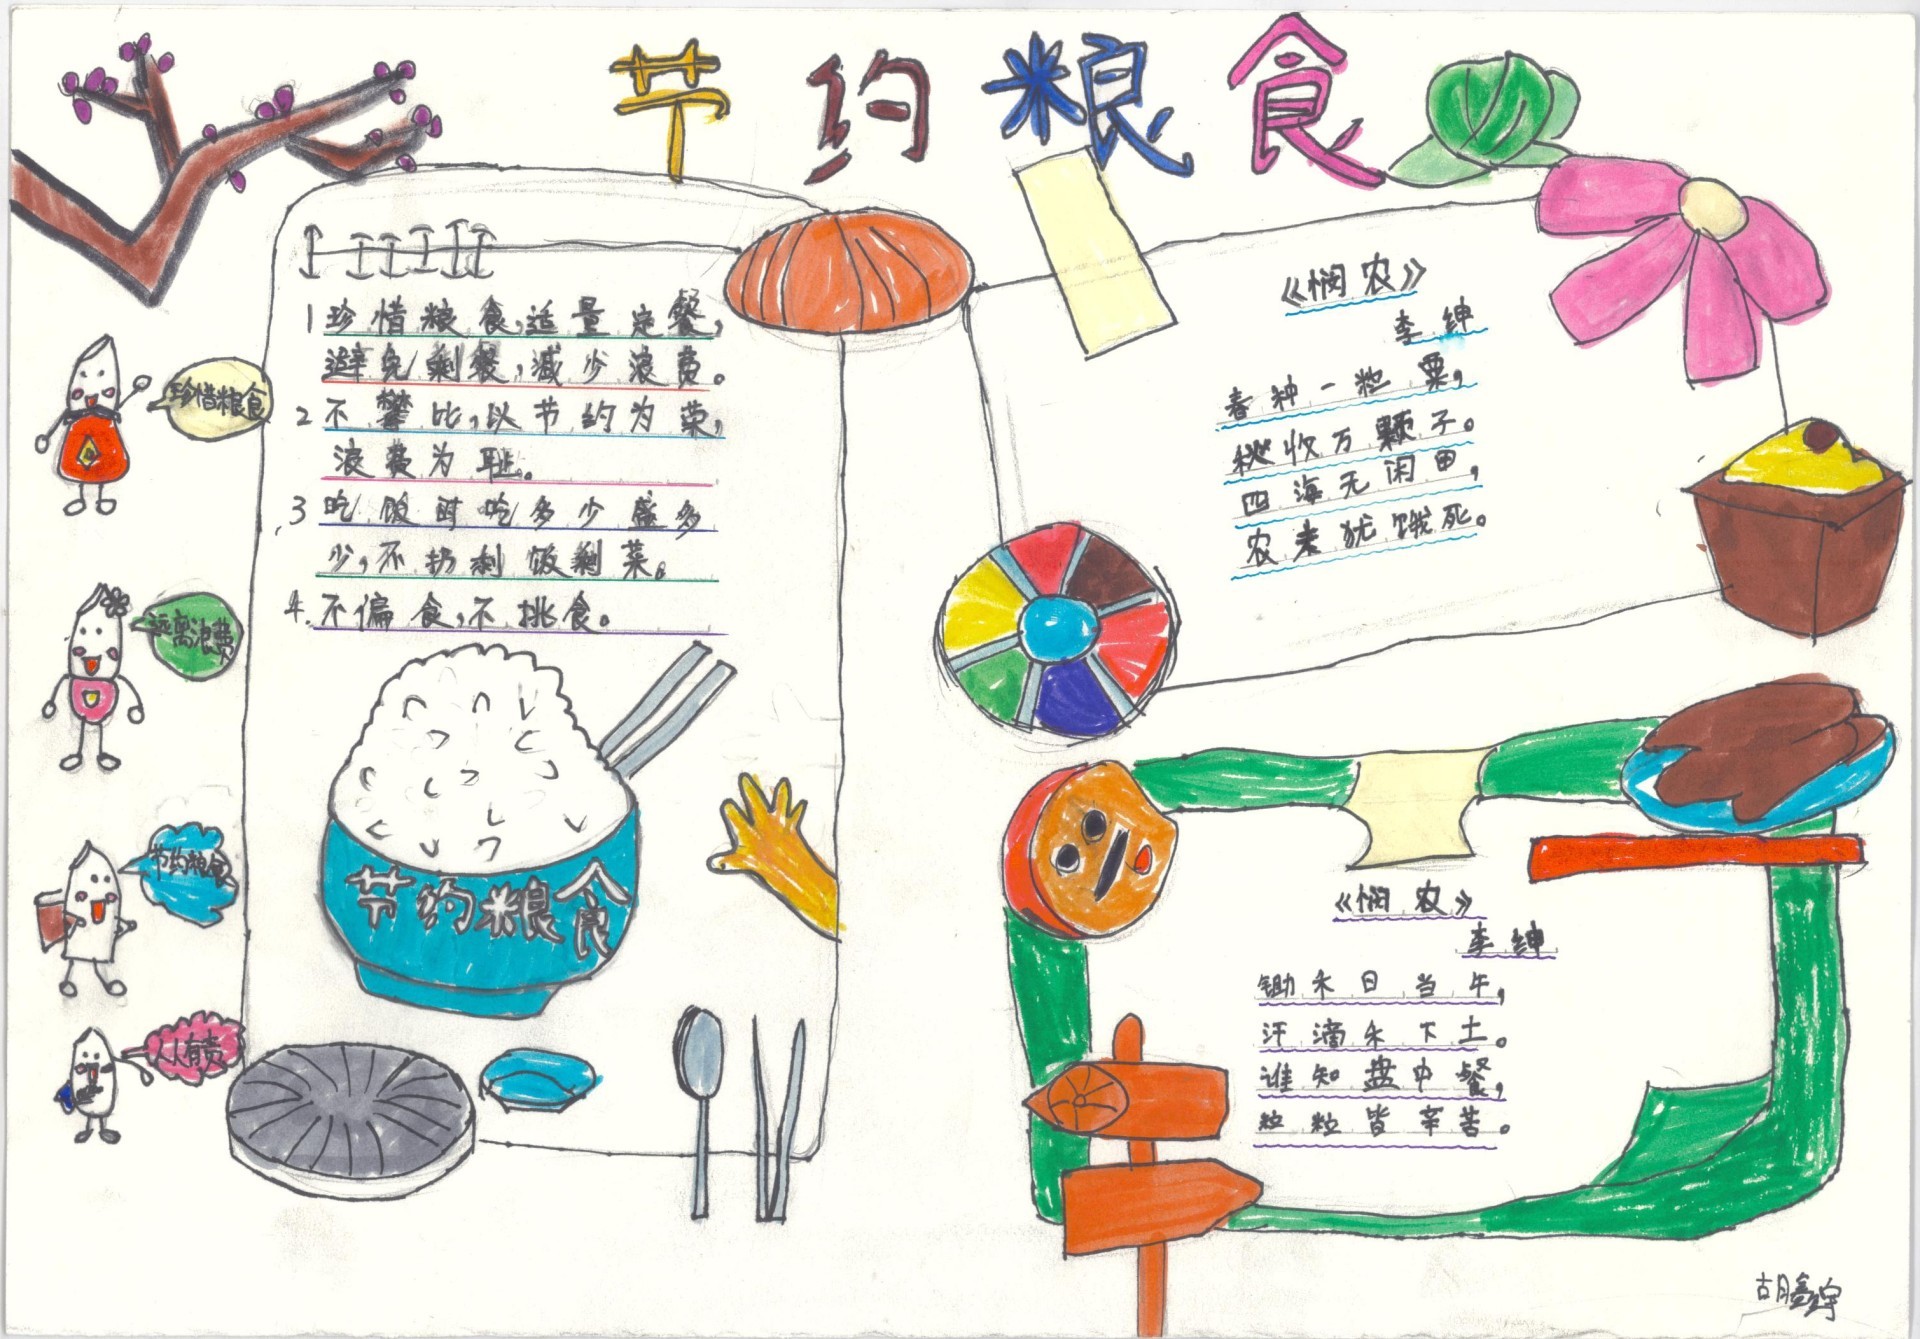 节约粮食
1珍惜粮食,适量定餐,
避免剩餐,减少浪费。
2不攀比,以节约为荣,
浪费为耻。
3吃饭时吃多少盛多
少,不扔剩饭剩菜。
4.不偏食,不挑食。
珍惜粮食
远离浪费
节约粮食
人人有责
节约粮食
《悯农》
李绅
春种一粒粟,
秋收万颗子。
四海无闲田,
农夫犹饿死。
《悯农》
李绅
锄禾日当午,
汗滴禾下土。
谁知盘中餐,
粒粒皆辛苦。
胡鑫宇